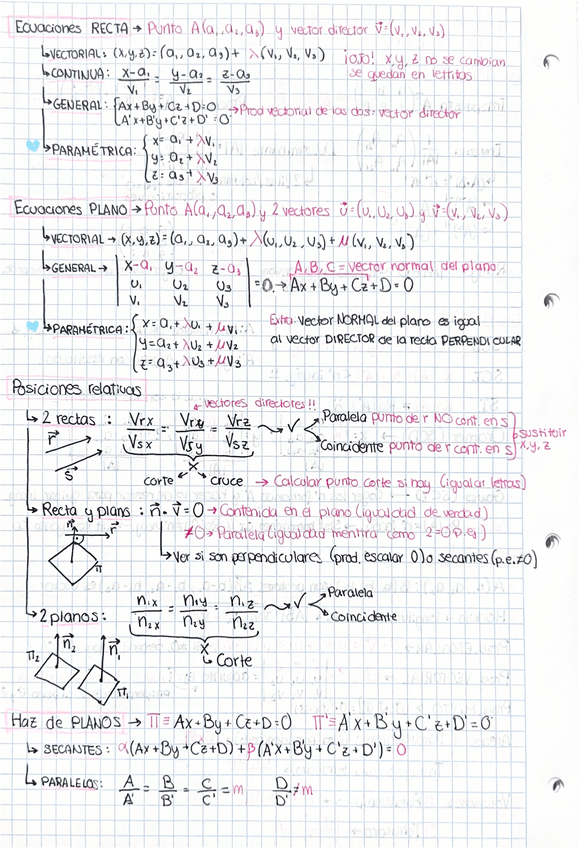 Ecuaciones RECTA → Punto A(a₁, a₂, a₃) y vector director v⃗=(v₁, v₂, v₃)
↳VECTORIAL: (x,y,z)=(a₁, a₂, a₃)+ λ(v₁, v₂, v₃) ¡OJO! x,y,z no se cambian
se quedan en letritas
↳CONTINUA: x-a₁/v₁ = y-a₂/v₂ = z-a₃/v₃
↳GENERAL: {Ax+By+Cz+D=0 →Prod vectorial de las dos: vector director
A'x+B'y+C'z+D'=0
↳PARAMÉTRICA: {x=a₁+λv₁
y=a₂+λv₂
z=a₃+λv₃
Ecuaciones PLANO → Punto A(a₁, a₂, a₃) y 2 vectores u⃗=(u₁, u₂, u₃) y v⃗=(v₁, v₂, v₃)
↳VECTORIAL → (x,y,z)=(a₁, a₂, a₃)+λ(u₁, u₂, u₃)+μ(v₁, v₂, v₃)
A,B,C = vector normal del plano
↳GENERAL → |x-a₁ y-a₂ z-a₃|
|u₁ u₂ u₃| =0→ Ax+By+Cz+D=0
|v₁ v₂ v₃|
↳PARAMÉTRICA: {x=a₁+λu₁+μv₁
y=a₂+λu₂+μv₂
z=a₃+λu₃+μv₃
Extra: Vector NORMAL del plano es igual
al vector DIRECTOR de la recta PERPENDICULAR
Posiciones relativas
vectores directores!!
↳2 rectas: Vrx/Vsx = Vry/Vsy = Vrz/Vsz → √ Paralela punto de r NO cont. en s
Coincidente punto de r cont. en s
sustituir
x,y,z
r⃗
s⃗
X
corte cruce → Calcular punto corte si hay (igualar letras)
↳Recta y plano: n⃗·v⃗=0→Contenida en el plano (igualdad de verdad)
≠0→Paralela (igualdad mentira como 2=0 p.ej)
↳Ver si son perpendiculares (prod. escalar 0) o secantes (p.e.≠0)
n⃗ r⃗
π
↳2 planos: n₁x/n₂x = n₁y/n₂y = n₁z/n₂z → √ Paralela
Coincidente
X
↳Corte
π₂ n⃗₂ n⃗₁ π₁
Haz de PLANOS → Π≡Ax+By+Cz+D=0 Π'≡A'x+B'y+C'z+D'=0
↳SECANTES: α(Ax+By+Cz+D)+β(A'x+B'y+C'z+D')=0
↳PARALELOS: A/A' = B/B' = C/C' =m D/D' ≠m